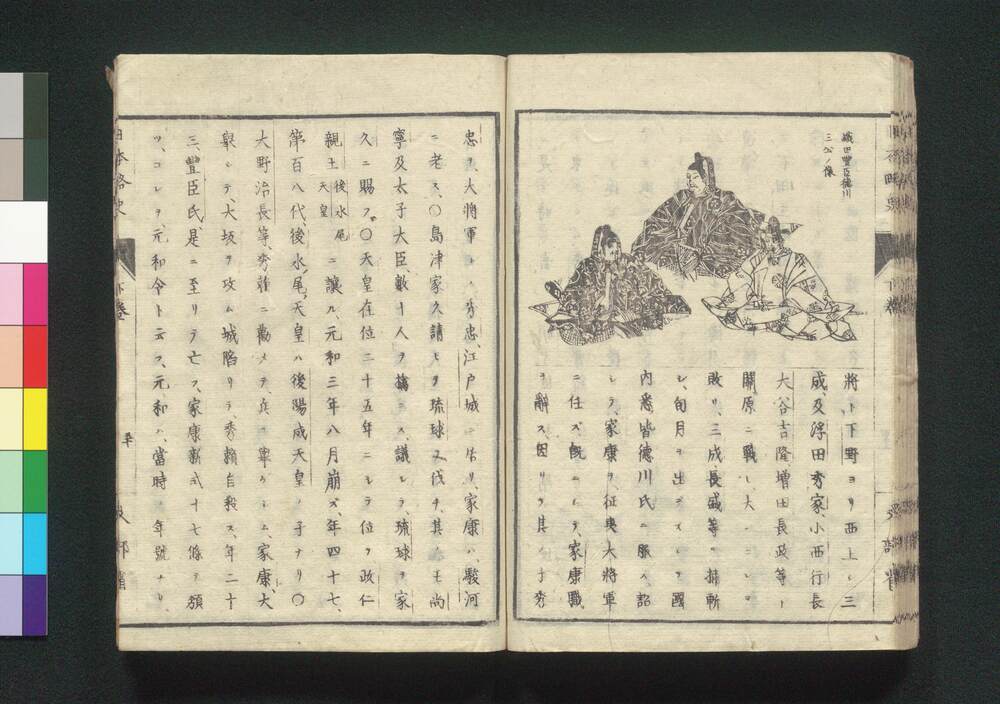 織田豐臣徳川
三公ノ像
將ト下野ヨリ西上シ三
成及浮田秀家小西行長
大谷吉隆増田長政等ト
關原ニ戰ヒ大ニ
敗リ三成長盛等ヲ捕斬
シ旬月ヲ出ズシテ國
内悉皆徳川氏ニ服ス詔
シテ家康ヲ征夷大將軍
ニ任ズ既ニシテ家康職
ヲ辭ス因リテ其子秀
忠 大將軍 秀忠江戸城ニ居リ家康ハ駿河
ニ老ス〇島津家久請ヒテ琉球ヲ伐チ其王尚
寧及太子大臣數十人ヲ擒ニス議シテ琉球ヲ家
久ニ賜フ〇天皇在位二十五年ニシテ位ヲ政仁
親王後水尾天皇ニ讓ル元和三年八月崩ズ年四十七
第百八代後水尾天皇ハ後陽成天皇ノ子ナリ〇
大野治長等秀頼ニ勸メテ兵ヲ擧ゲシム家康大
擧シテ大坂ヲ攻ム城陷リテ秀頼自殺ス年二十
三豐臣氏是ニ至リテ亡ブ家康新式十七條ヲ頒
ツコレヲ元和令ト云フ元和ハ當時ノ年號ナリ
日本略史
下卷
文部省